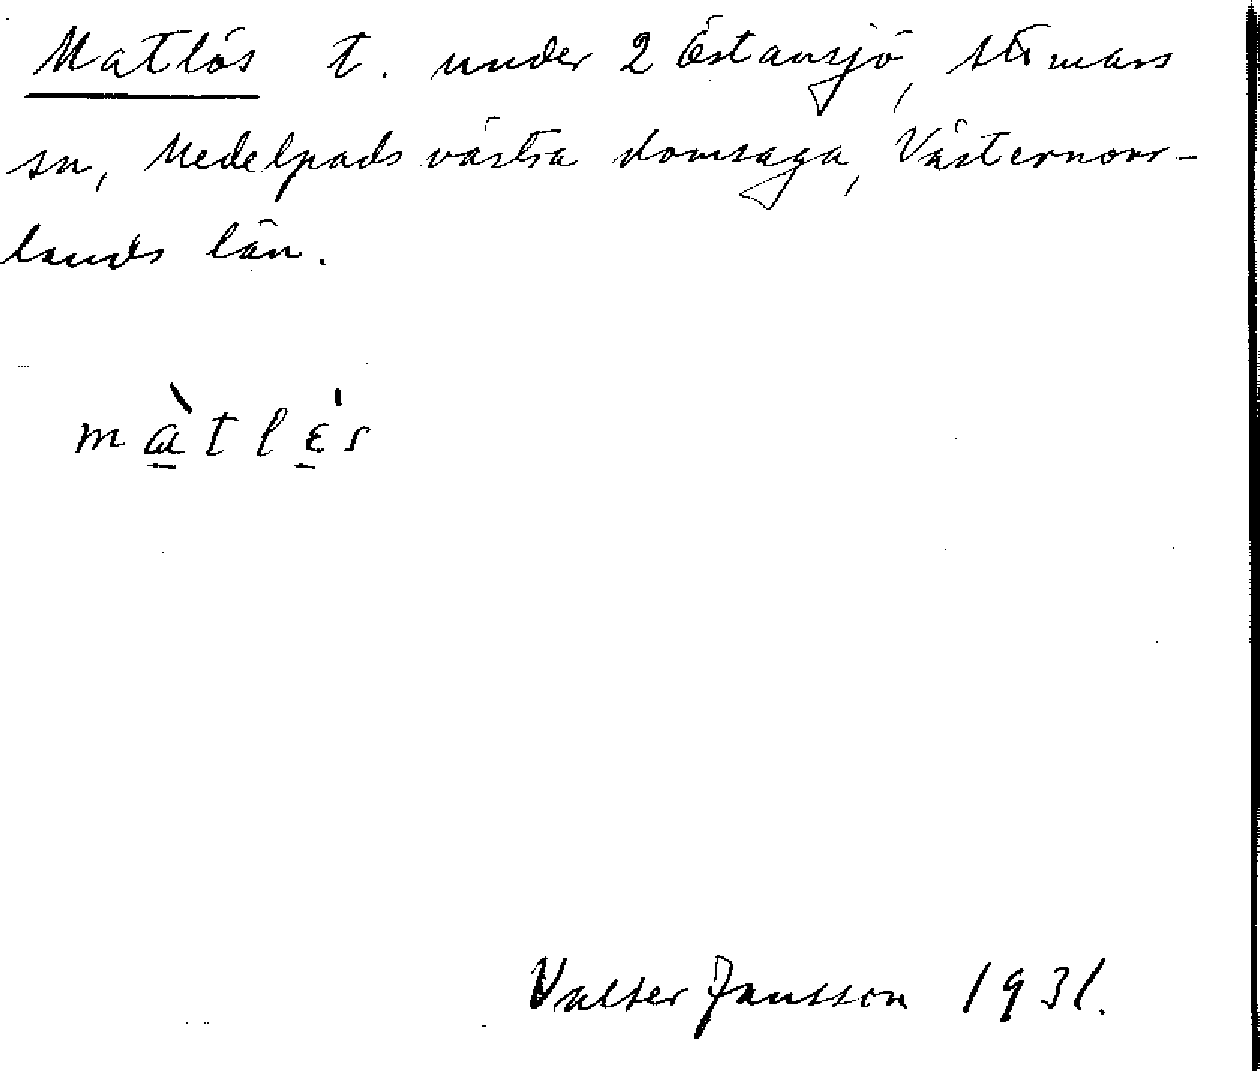 Matlös t. under 2 Östansjö, Attmars
sn, Medelpads västra domsaga, Västernorr-
lands län.
màtlɛ̀s
Valter Jansson 1931.